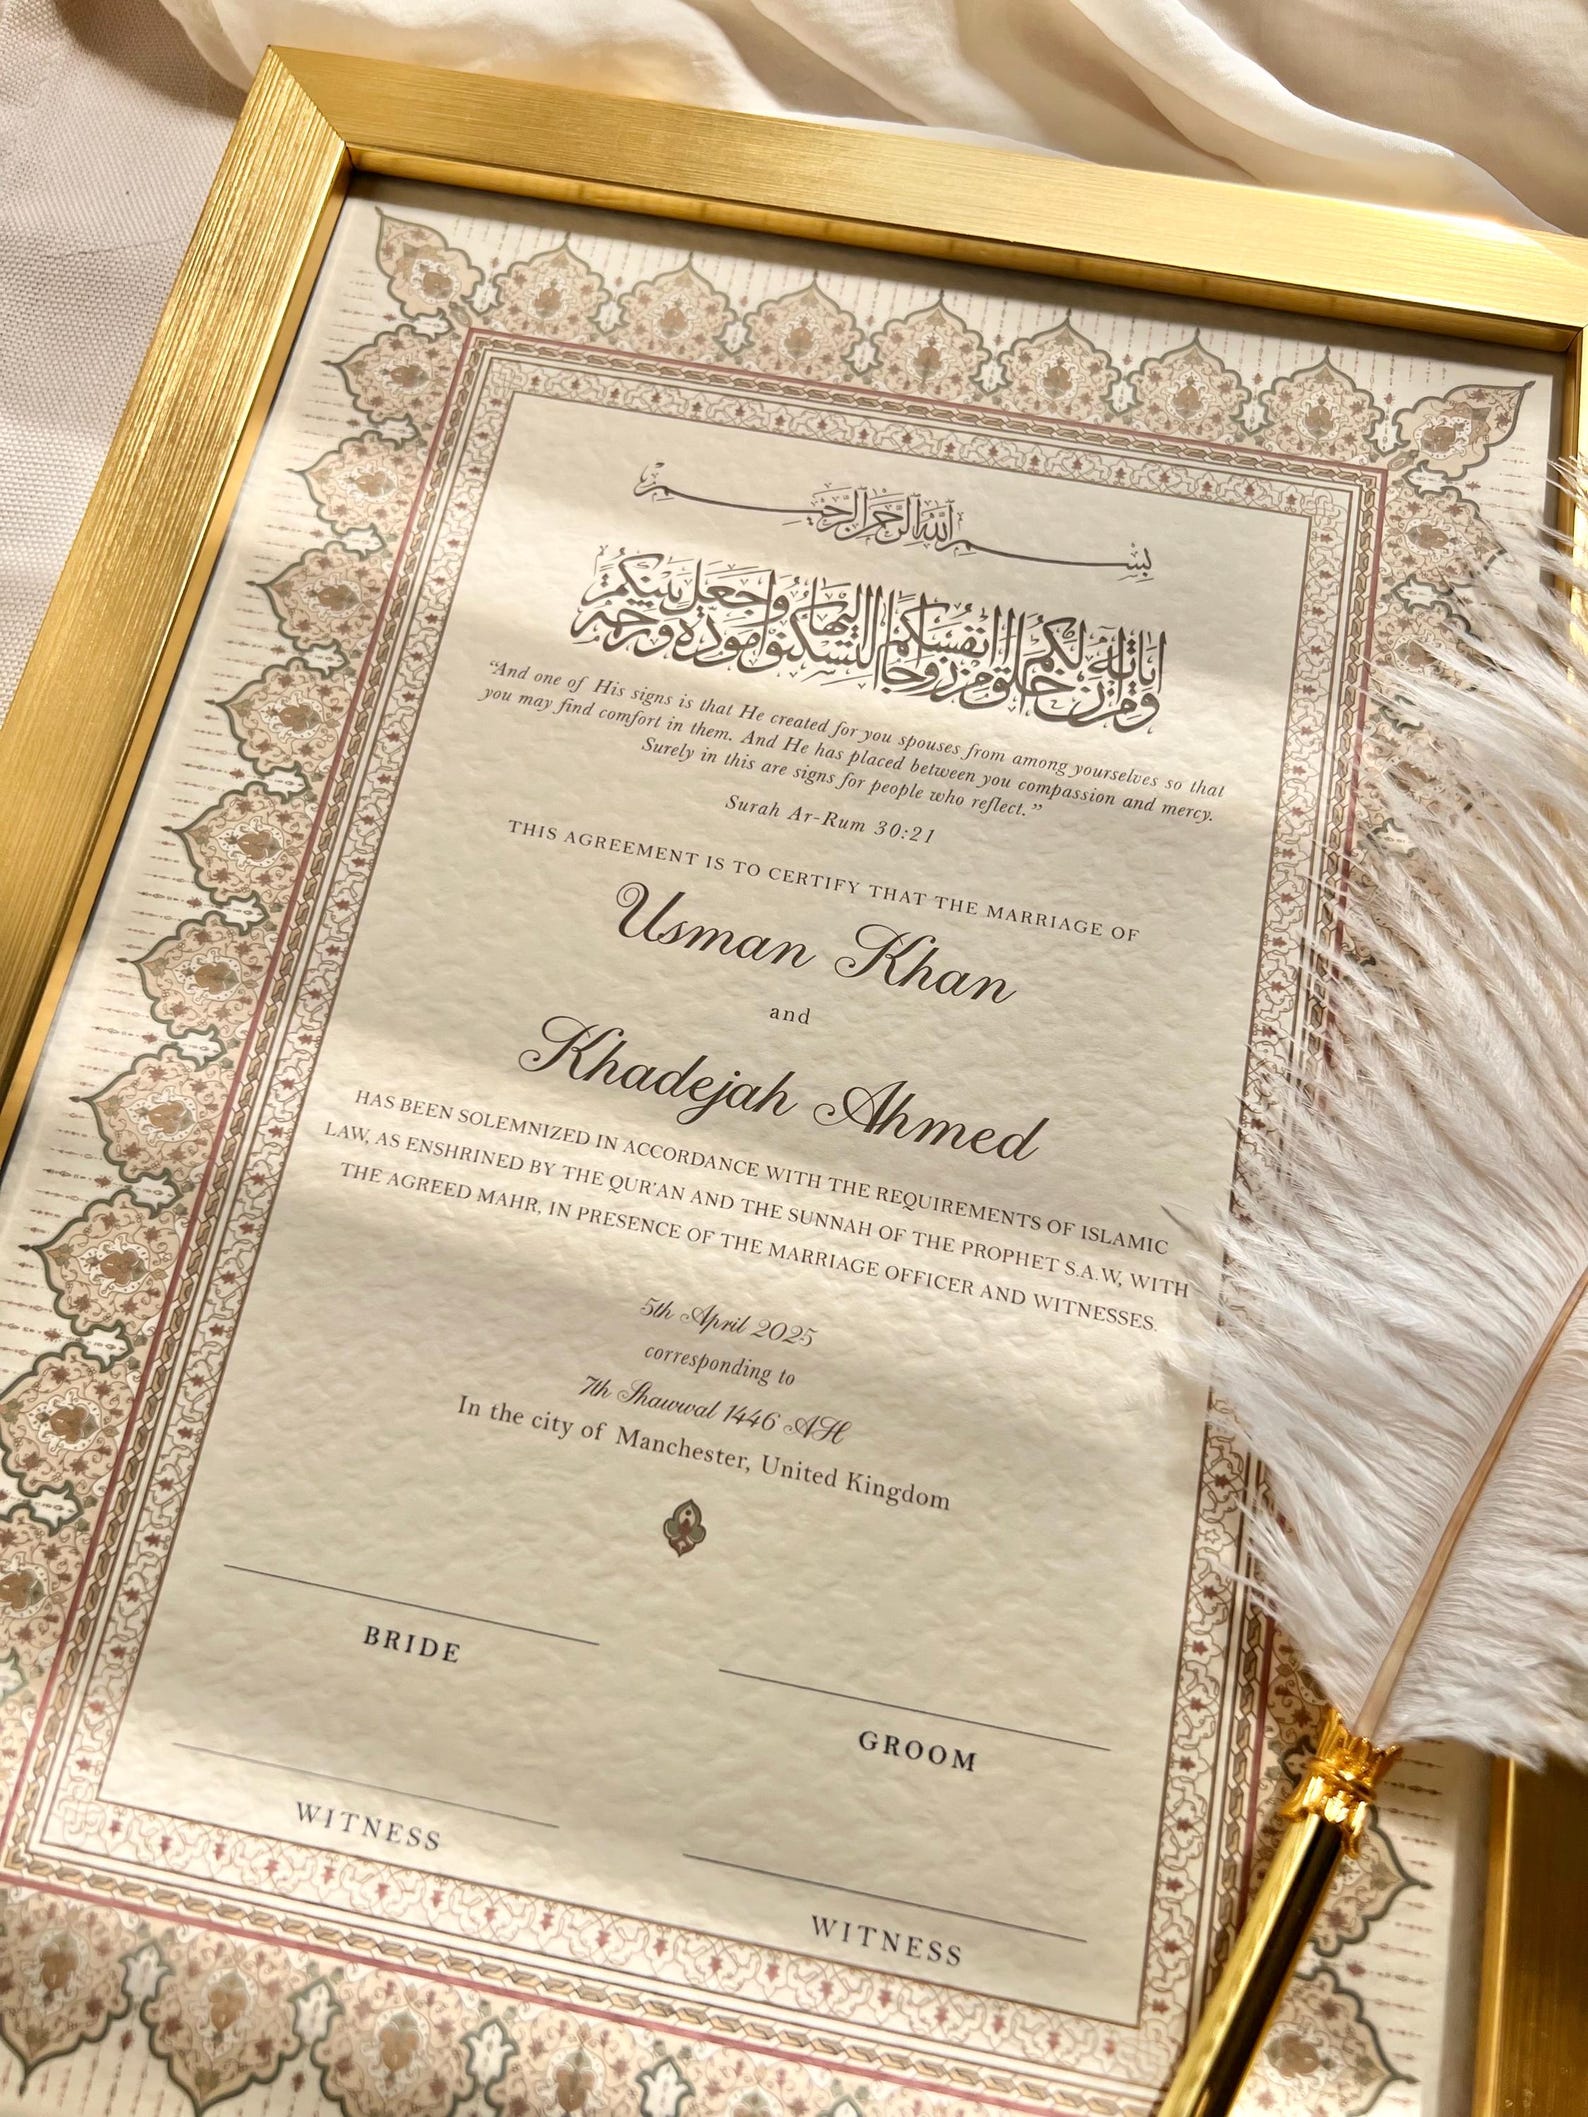 بسم الله الرحمن الرحيم
ومن اياته ان خلق لكم من انفسكم ازواجا لتسكنوا اليها وجعل بينكم مودة ورحمة
“And one of His signs is that He created for you spouses from among yourselves so that
you may find comfort in them. And He has placed between you compassion and mercy.
Surely in this are signs for people who reflect.”
Surah Ar-Rum 30:21
THIS AGREEMENT IS TO CERTIFY THAT THE MARRIAGE OF
Usman Khan
and
Khadejah Ahmed
HAS BEEN SOLEMNIZED IN ACCORDANCE WITH THE REQUIREMENTS OF ISLAMIC
LAW, AS ENSHRINED BY THE QUR'AN AND THE SUNNAH OF THE PROPHET S.A.W, WITH
THE AGREED MAHR, IN PRESENCE OF THE MARRIAGE OFFICER AND WITNESSES.
5th April 2025
corresponding to
7th Shawwal 1446 AH
In the city of Manchester, United Kingdom
BRIDE
GROOM
WITNESS
WITNESS